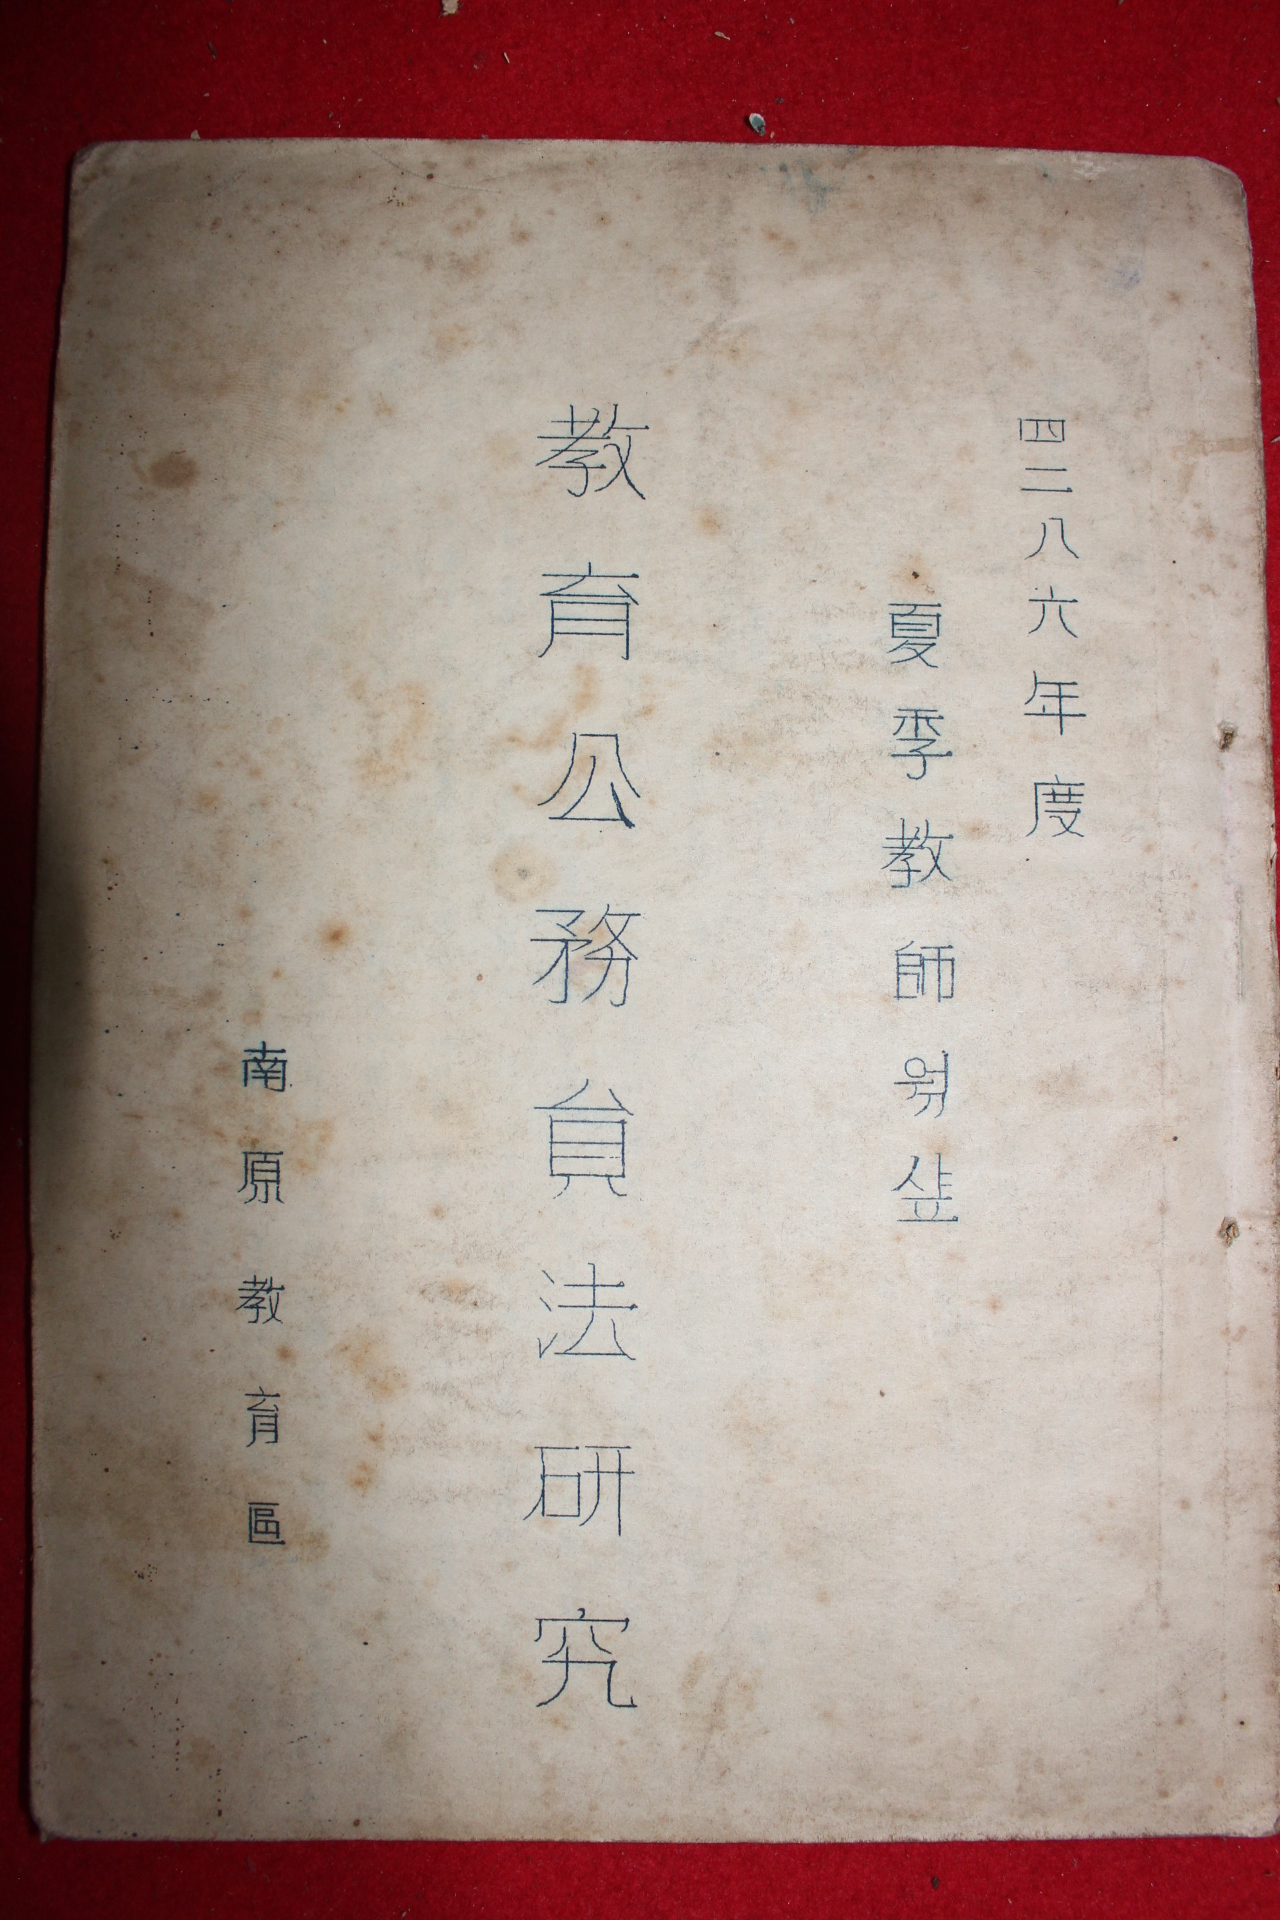 四二八六年度
夏季教師웍샾
教育公務員法研究
南原教育區